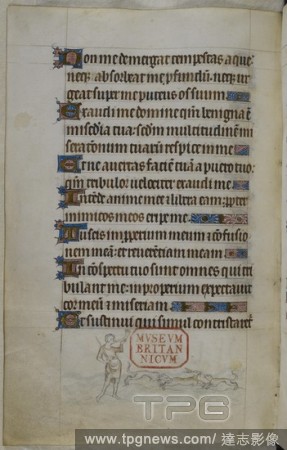 Non me demergat tempestas aque:
neq; absorbeat me p̄fundū. neq; ur
geat super me puteus os suum.
Exaudi me domine qm̄ benigna ē
miscd̄ia tua: scdm̄ multitudinē mi
serationum tuarū respice in me.
Et ne avertas faciē tuā a puero tuo:
qm̄ tribulor velociter exaudi me.
Intēde anime mee & libera eam: ꝓpter
inimicos meos eripe me.
Tu scis inproperium meum & cōfusio
nem meā: et reverētiam meam.
In cōspectu tuo sunt omnes qui tri
bulant me: inproperium expectavit
cor meū & miseriam.
Et sustinui qui simul contristaret᷑
MVSEVM
BRITAN
NICVM
TPG
www.tpgnews.com/ 達志影像